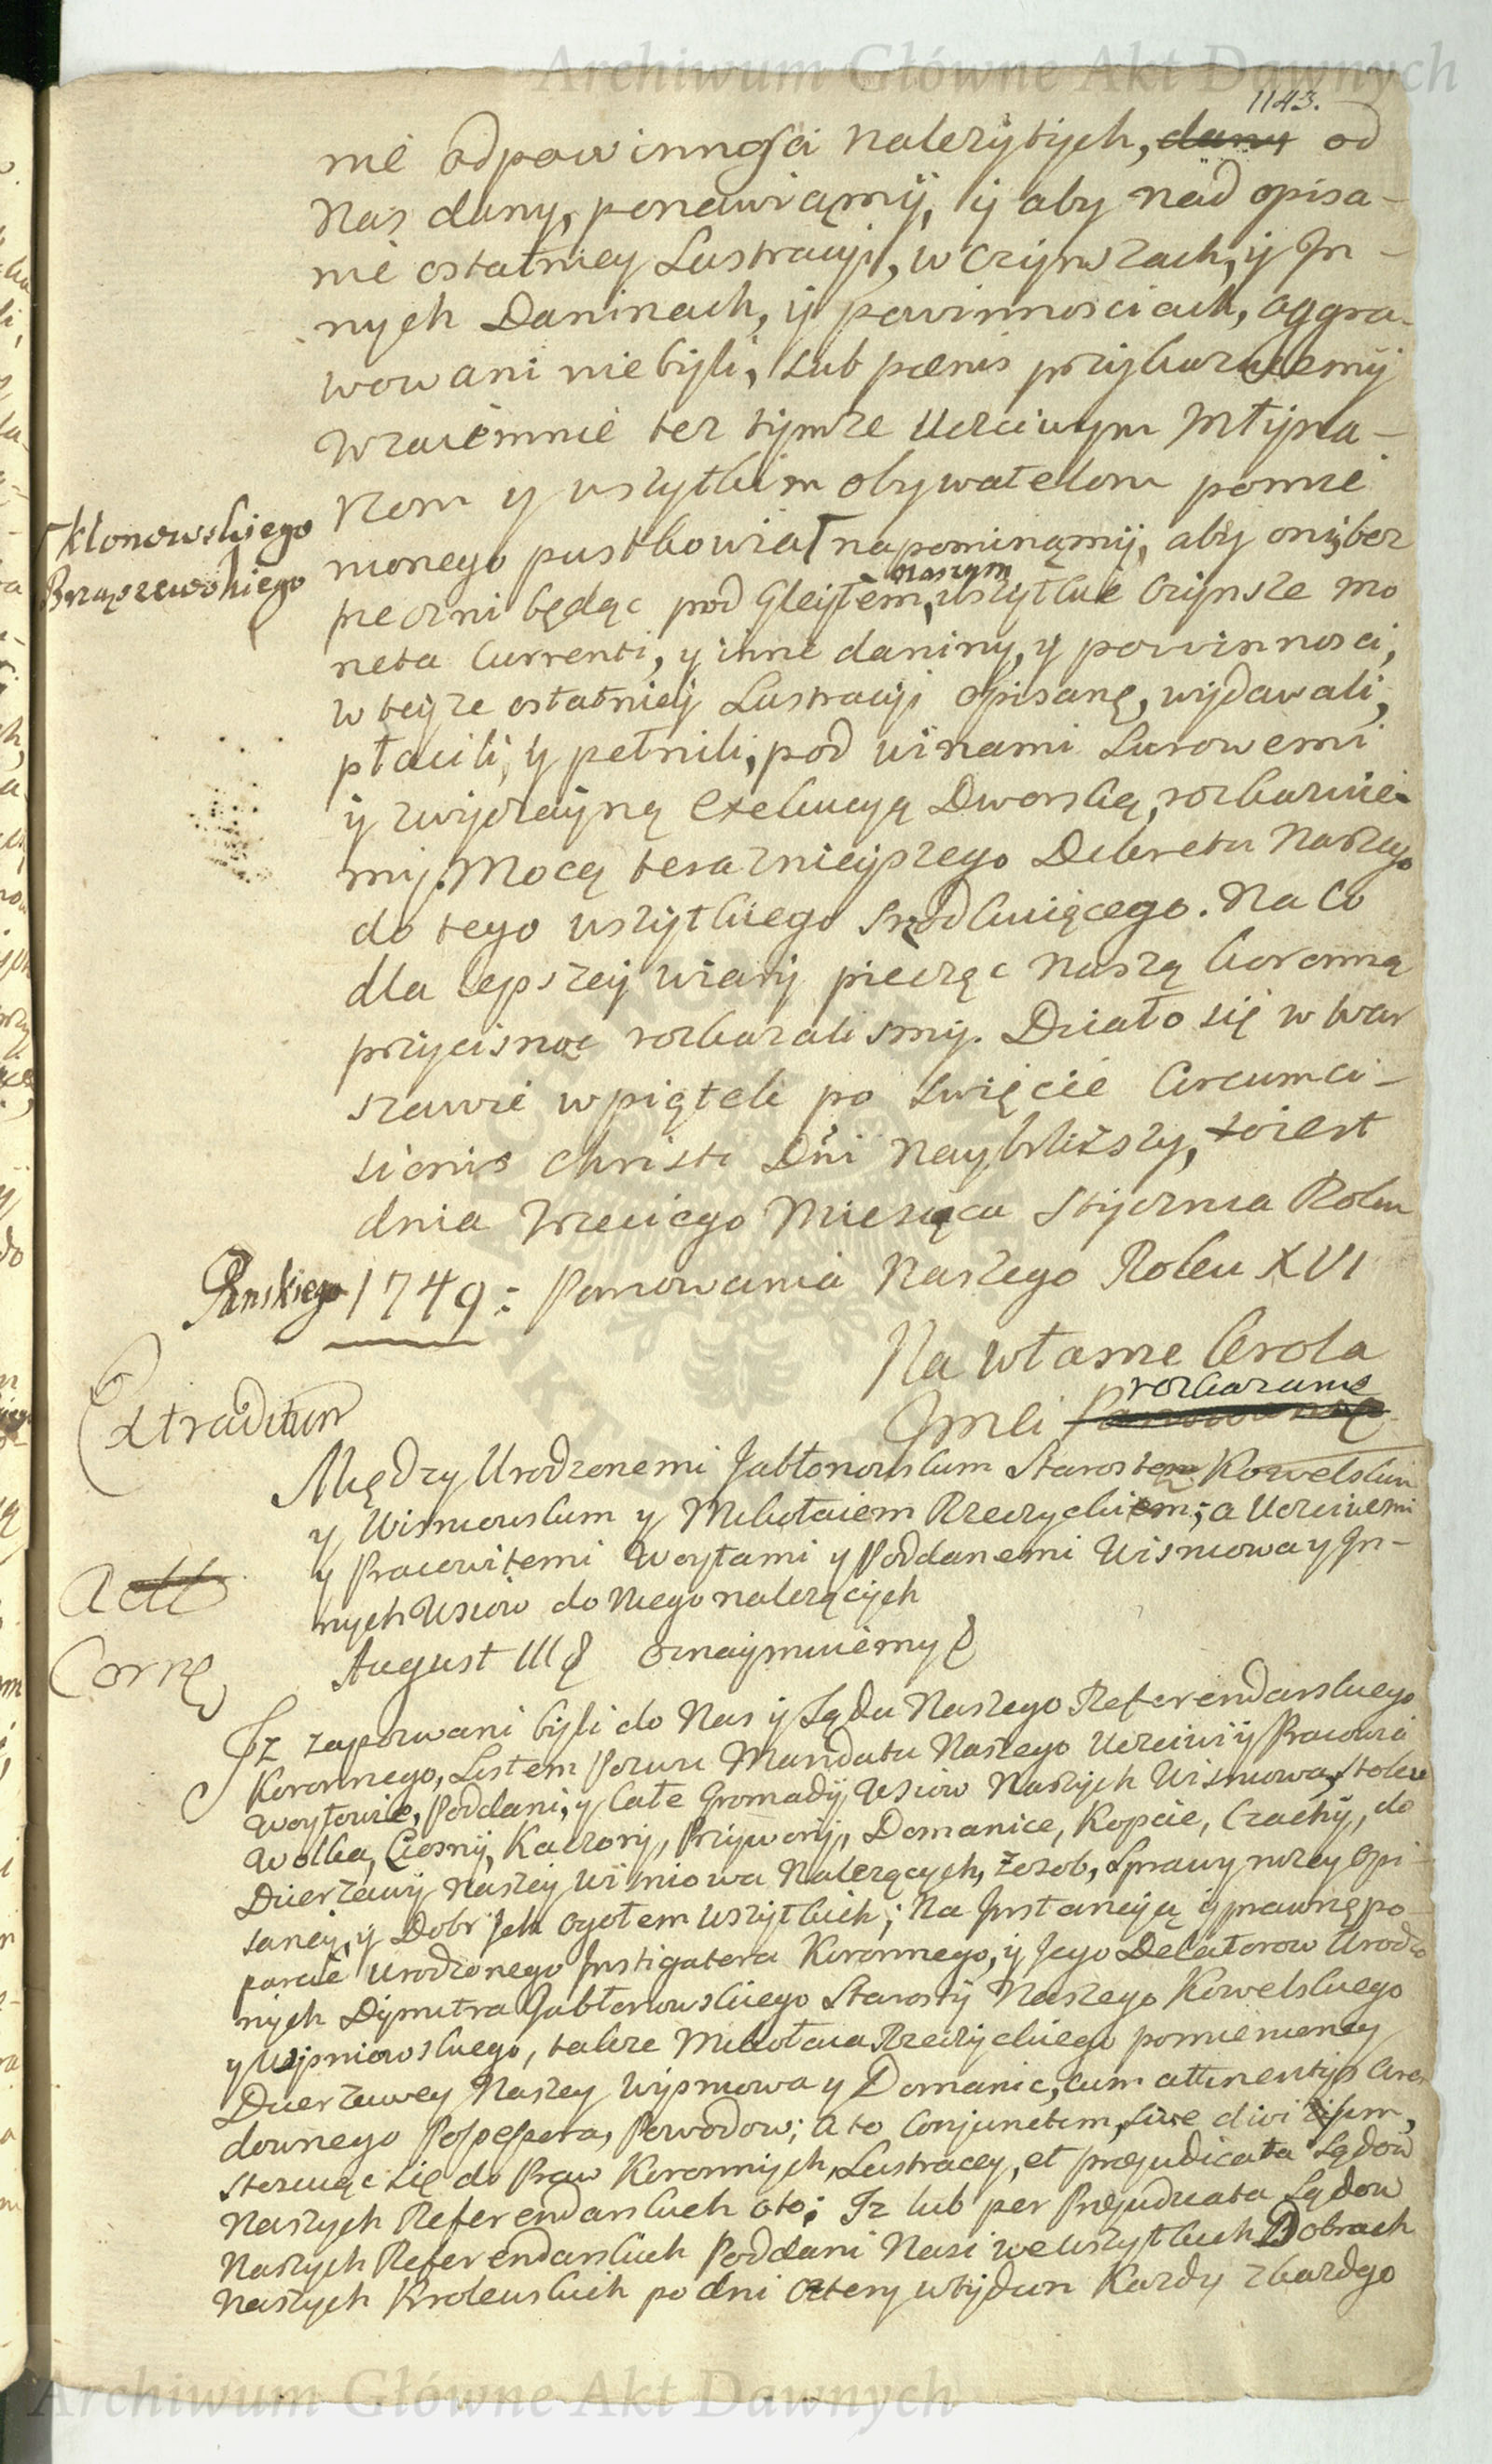 Archiwum Główne Akt Dawnych
1143.
nie odpowinnosci nalezytych, dany od
Nas dany, ponawiąmy, y aby nad opisa-
nie ostatniey Lustracyi, w czynszach, y In-
nych Daninach, y powinnosciach, aggra-
wowani niebyli, sub pœnis przykazuiemy
wzaiemnie tez tymze Uczciwym Młyna-
rzom y wszytkim obywatelom pomie
nionego pustkowia napominamy, aby oni, bez
Kłonowskiego
Brzązewskiego
pieczni będąc pod Gleytem naszym, wszytkie Czynsze mo
neta Currenti, y inne daniny, y powinnosci,
w teyze ostatniey Lustracyi opisane, wydawali,
płacili, y pełnili, pod winami Surowemi
y zwyczayną Exekucyą Dworską, rozkazuie-
my. Mocą terazniejszego Dekretu Naszego
do tego wszytkiego srzodkuiącego. Na Co
dla lepszey wiary pieczęc Naszą koronną
przycisnąc rozkazalismy. Działo się w War
szawie w piątek po swięcie Circumci-
sionis Christi Dni Nayblizszy, to iest
dnia trzeciego Miesiąca Stycznia Roku
Panskiego 1749: Panowania Naszego Roku XVI
Na własne krola
Jmci rozkazanie
Extraditum
Między Urodzonemi Jabłonowskim Starostem Kowelskim
y Wisniowskim y Mikołaiem Rzeczyckiem; a Uczciwemi
y Pracowitemi Woytami y Poddanemi Wisniowa y In-
nych Wsiow do niego nalezących
Corr
August III Oznaymuiemy
Iz zapozwani byli do Nas y Sądu Naszego Referendarskiego
Koronnego, Listem Pozwu Mandatu Naszego Uczciwi y Pracowici
Woytowie, Poddani, y Całe Gromady Wsiow Naszych Wisniowa, Stolec
Wolka, Ciosny, Kaczory, Przywory, Domanice, Kopcie, Czachy, do
Dzierzawy Naszey Wisniowa Nalezących, zosob, Sprawy nizey Opi-
saney, y Dobr Ich ogołem wszytkich; Na Instancyą y prawne po-
parcie Urodzonego Instigatora Koronnego, y Jego Delatorow Urodzo
nych Dymitra Jabłonowskiego Starosty Naszego Kowelskiego
y Wyśniowskiego, takze Mikołaia Rzeczyckiego pomienioney
Dzierzawey Naszey Wysniowa y Domanic, cum attinentys Aren
downego Possessora, Powodow; a to Conjunctim, sive divisim,
stosuiąc się do Praw Koronnych, Lustracey, et præjudicata Sądow
Naszych Referendarskich oto; Iz lub per Præjudicata Sądow
Naszych Referendarskich Poddani Nasi we wszytkich Dobrach
Naszych Krolewskich po dni Cztery w tydzien Kazdy z kazdego
Archiwum Główne Akt Dawnych